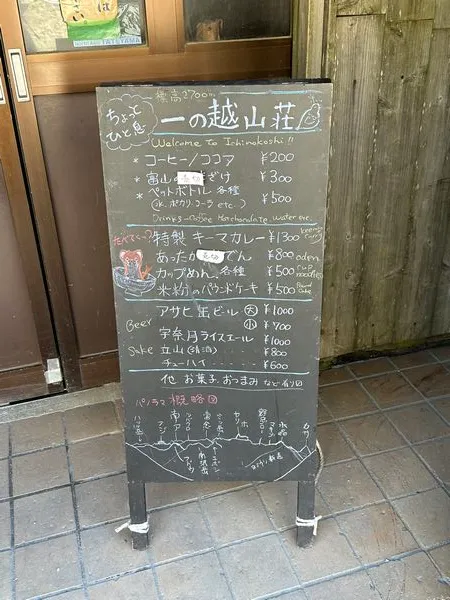 ちょっと
ひと息
標高2700m
一の越山荘
Welcome To Ichinokoshi!!
* コーヒー/ココア ¥200
* 富山の 売切 ざけ ¥300
* ペットボトル 各種 ¥500
(水、ポカリ、コーラ etc.)
たべてく〜?
特製 キーマカレー ¥1300
あったか 売切 でん ¥800 oden
カップめん 各種 ¥500 cup noodles
米粉のパウンドケーキ ¥500 Pound Cake
Beer
アサヒ 缶ビール 大 ¥1000
小 ¥700
宇奈月ライスエール ¥1000
Sake 立山(清酒) ¥800
チューハイ ¥600
他 お菓子、おつまみ など有り〼
パノラマ概略図